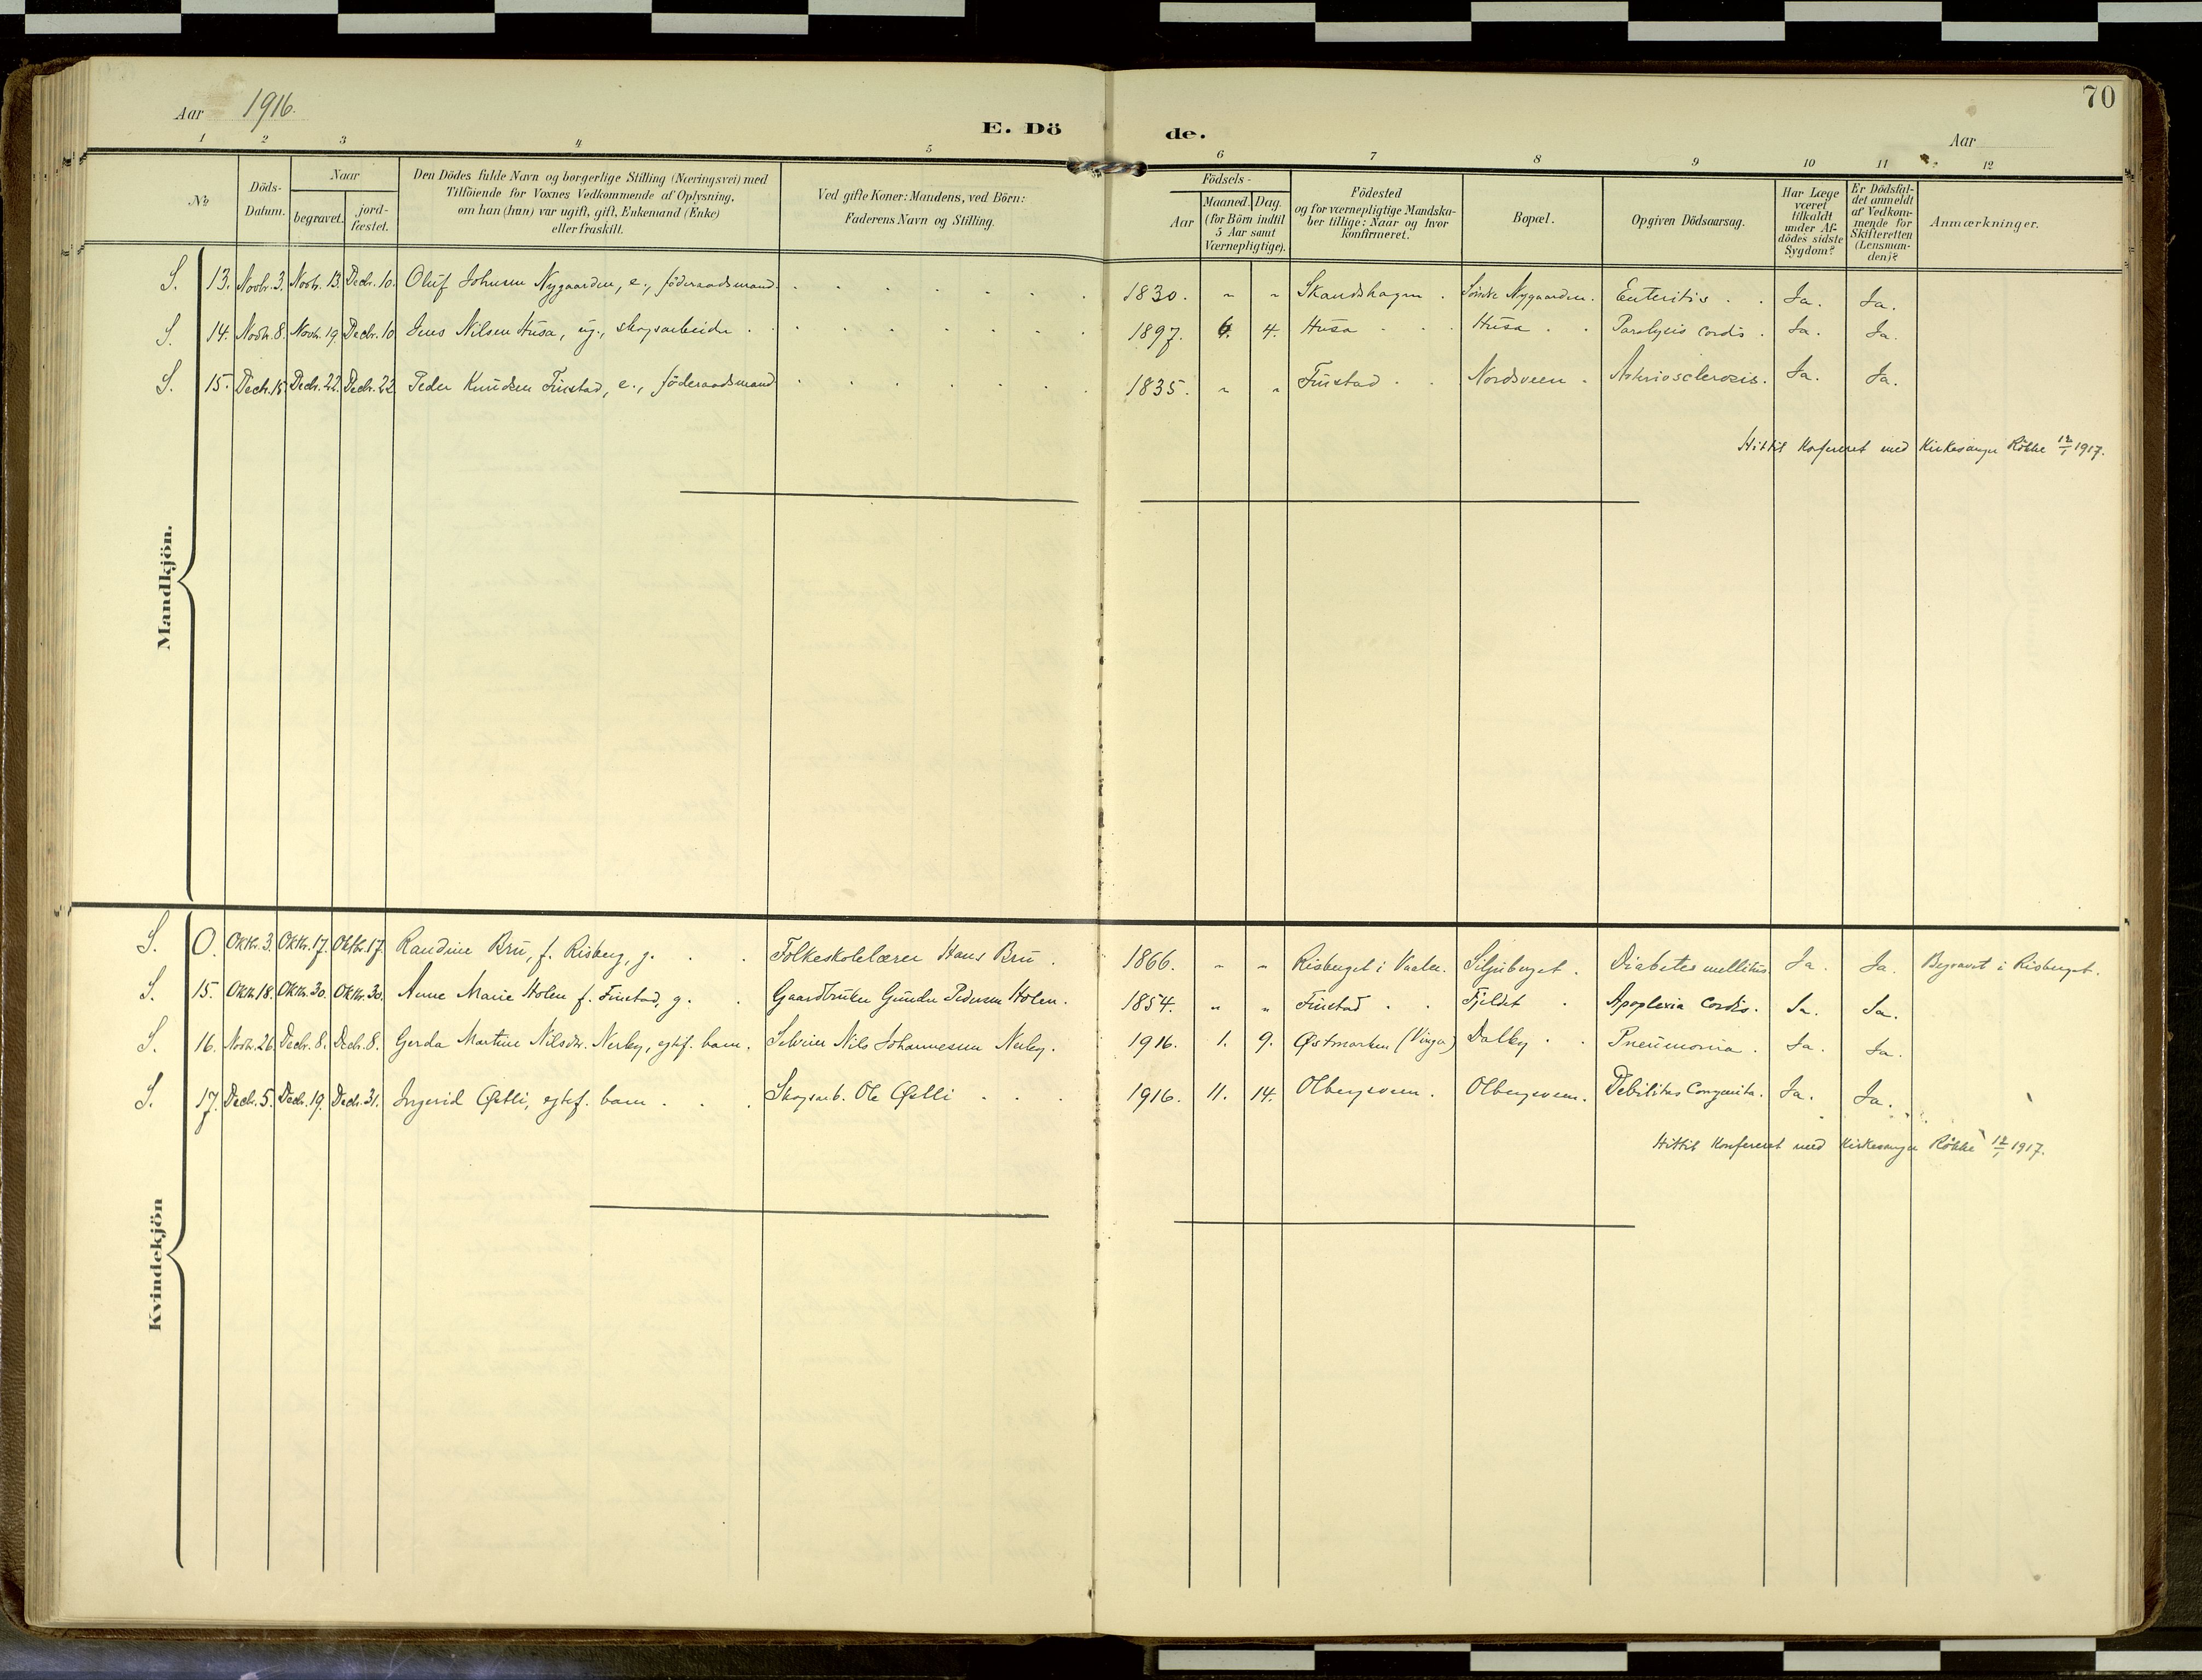 70
Aar 1916.
E. Dö de.
Aar
1 2 3 4 5 6 7 8 9 10 11 12
No
Döds-Datum.
Naar
begravet.
jord-fæstet.
Den Dödes fulde Navn og borgerlige Stilling (Næringsvei) med
Tilföiende for Voxnes Vedkommende af Oplysning,
om han (hun) var ugift, gift, Enkemand (Enke)
eller fraskilt.
Ved gifte Koner: Mandens, ved Börn:
Faderens Navn og Stilling.
Födsels-
Aar
Maaned. Dag.
(for Börn indtil
5 Aar samt
Værnepligtige).
Födested
og for værnepligtige Mandska-
ber tillige: Naar og hvor
konfirmeret.
Bopæl.
Opgiven Dödsaarsag.
Har Læge
været
tilkaldt
under Af-
dödes sidste
Sygdom?
Er Dödsfal-
det anmeldt
af Vedkom-
mende for
Skifteretten
(Lensman-
den)?
Anmærkninger.
Mandkjön.
S. 13. Novbr. 3. Novbr. 13. Decbr. 10. Oluf Johnsen Nygaarden, e., föderaadsmand. 1830. " " Skandshagen. Söndre Nygaarden. Enteritis. Ja. Ja.
S. 14. Novbr. 8. Novbr. 19. Decbr. 10. Jens Nilsen Husa, ug., skogsarbeider. 1897. 6. 4. Husa Husa Paralysis cordis. Ja. Ja.
S. 15. Decbr. 15. Decbr. 22. Decbr. 22. Peder Knudsen Finstad, e., föderaadsmand 1835. " " Finstad Nordsveen. Arteriosclerosis. Ja. Ja.
Hittil konfereret med Kirkesanger Röhke 12/1 1917.
Kvindekjön
S. O. Oktbr. 3. Oktbr. 17. Oktbr. 17. Randine Bru, f. Risberg, g. Folkeskolelærer Hans Bru. 1866. " " Risberget i Vaaler. Siljuberget. Diabetes mellitus Ja. Ja. Begravet i Risberget.
S. 15. Oktbr. 18. Oktbr. 30. Oktbr. 30. Anne Marie Holen f. Finstad, g. Gaardbruker Gunder Pedersen Holen. 1854. " " Finstad Fjeldet Apoplexia cordis. Ja. Ja.
S. 16. Novbr. 26. Decbr. 8. Decbr. 8. Gerda Martine Nilsdtr. Nerby, egtef. barn. Nils Johannesen Nerby. 1916. 1. 9. Östmarken (Vinger) Dalby Pneumonia. Ja. Ja.
S. 17. Decbr. 5. Decbr. 19. Decbr. 31. Ingerid Østli, egtef. barn Skogsarb. Ole Østli 1916. 11. 14. Olbergsveen. Olbergsveen. Debilitas congenita. Ja. Ja.
Hittil konfereret med Kirkesanger Röhke 12/1 1917.